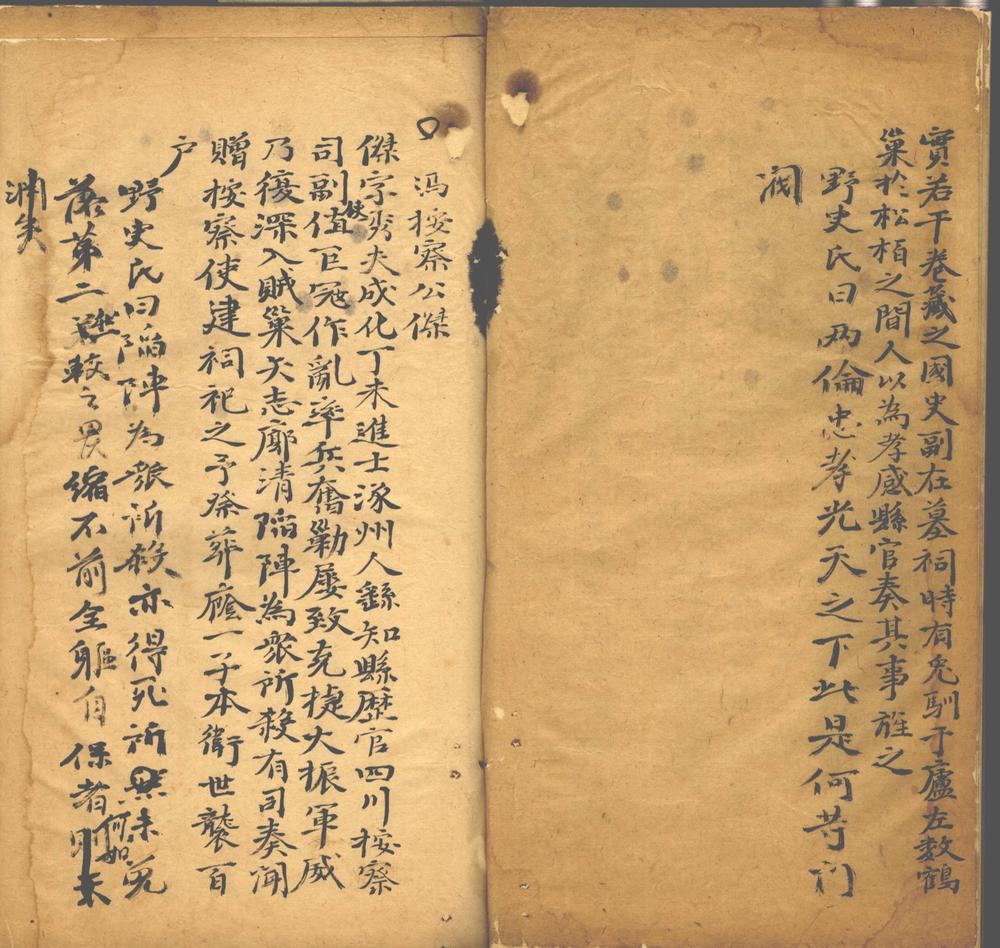 實若干卷藏之國史副在墓祠時有兔馴于廬左數鶴
巢於松栢之間人以為孝感縣官奏其事旌之
野史氏曰兩倫忠孝光天之下此是何等門
閥
馮按察公傑
傑字秀夫成化丁未進士涿州人繇知縣歷官四川按察
司副使值巨寇作亂率兵奮勦屢致克捷大振軍威
乃復深入賊巢矢志廓清陷陣為衆所殺有司奏聞
贈按察使建祠祀之予祭葬廕一子本衛世襲百
户
野史氏曰陷陣為衆所殺亦得死所然未免
落第二然較之畏縮不前全軀自保者何如
淵矣